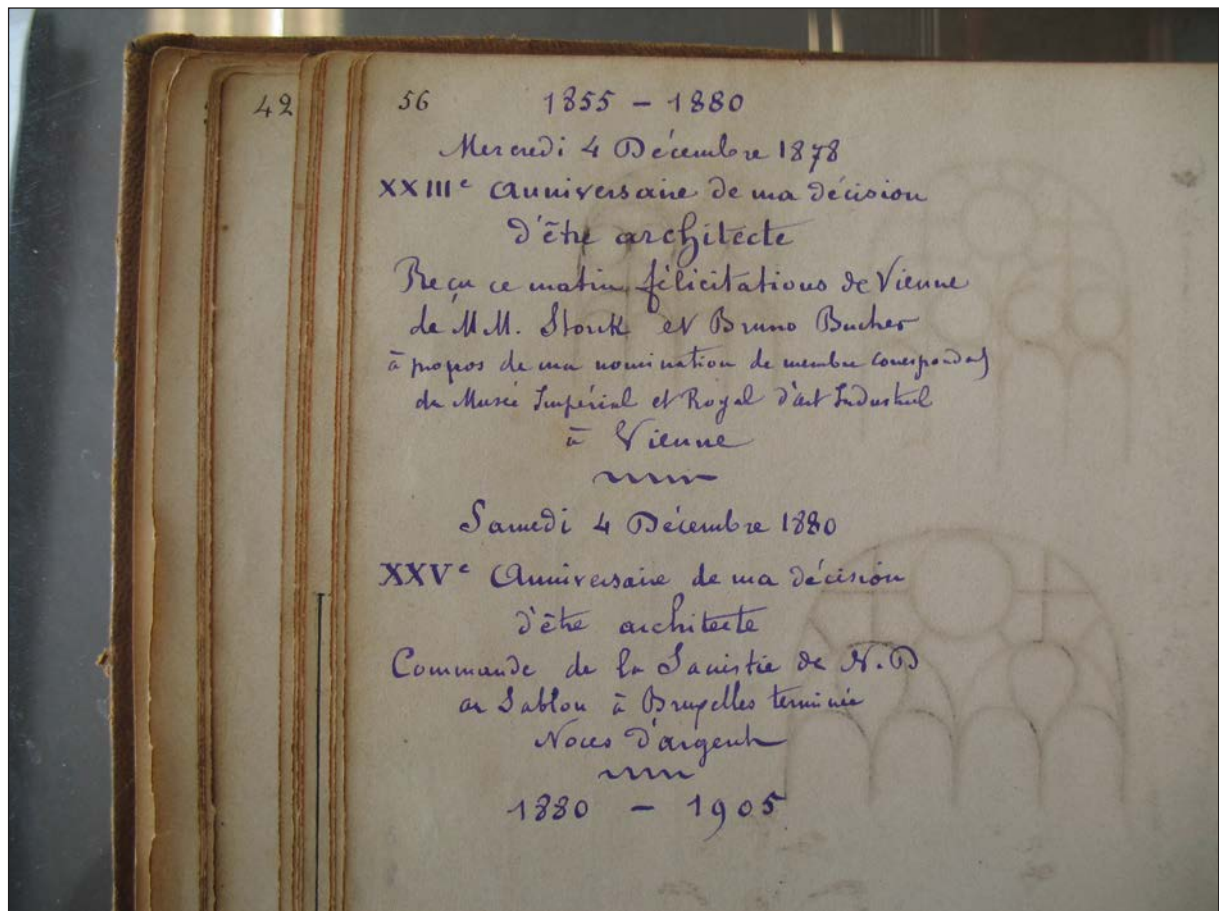 42
56
1855 – 1880
Mercredi 4 Décembre 1878
XXIIIe Anniversaire de ma décision
d'être architecte
Reçu ce matin félicitations de Vienne
de MM. Storck et Bruno Bucher
à propos de ma nomination de membre correspondant
du Musée Impérial et Royal d'art Industriel
à Vienne
Samedi 4 Décembre 1880
XXVe Anniversaire de ma décision
d'être architecte
Commande de la Sacristie de N.D
du Sablon à Bruxelles terminée
Noces d'argent
1880 – 1905